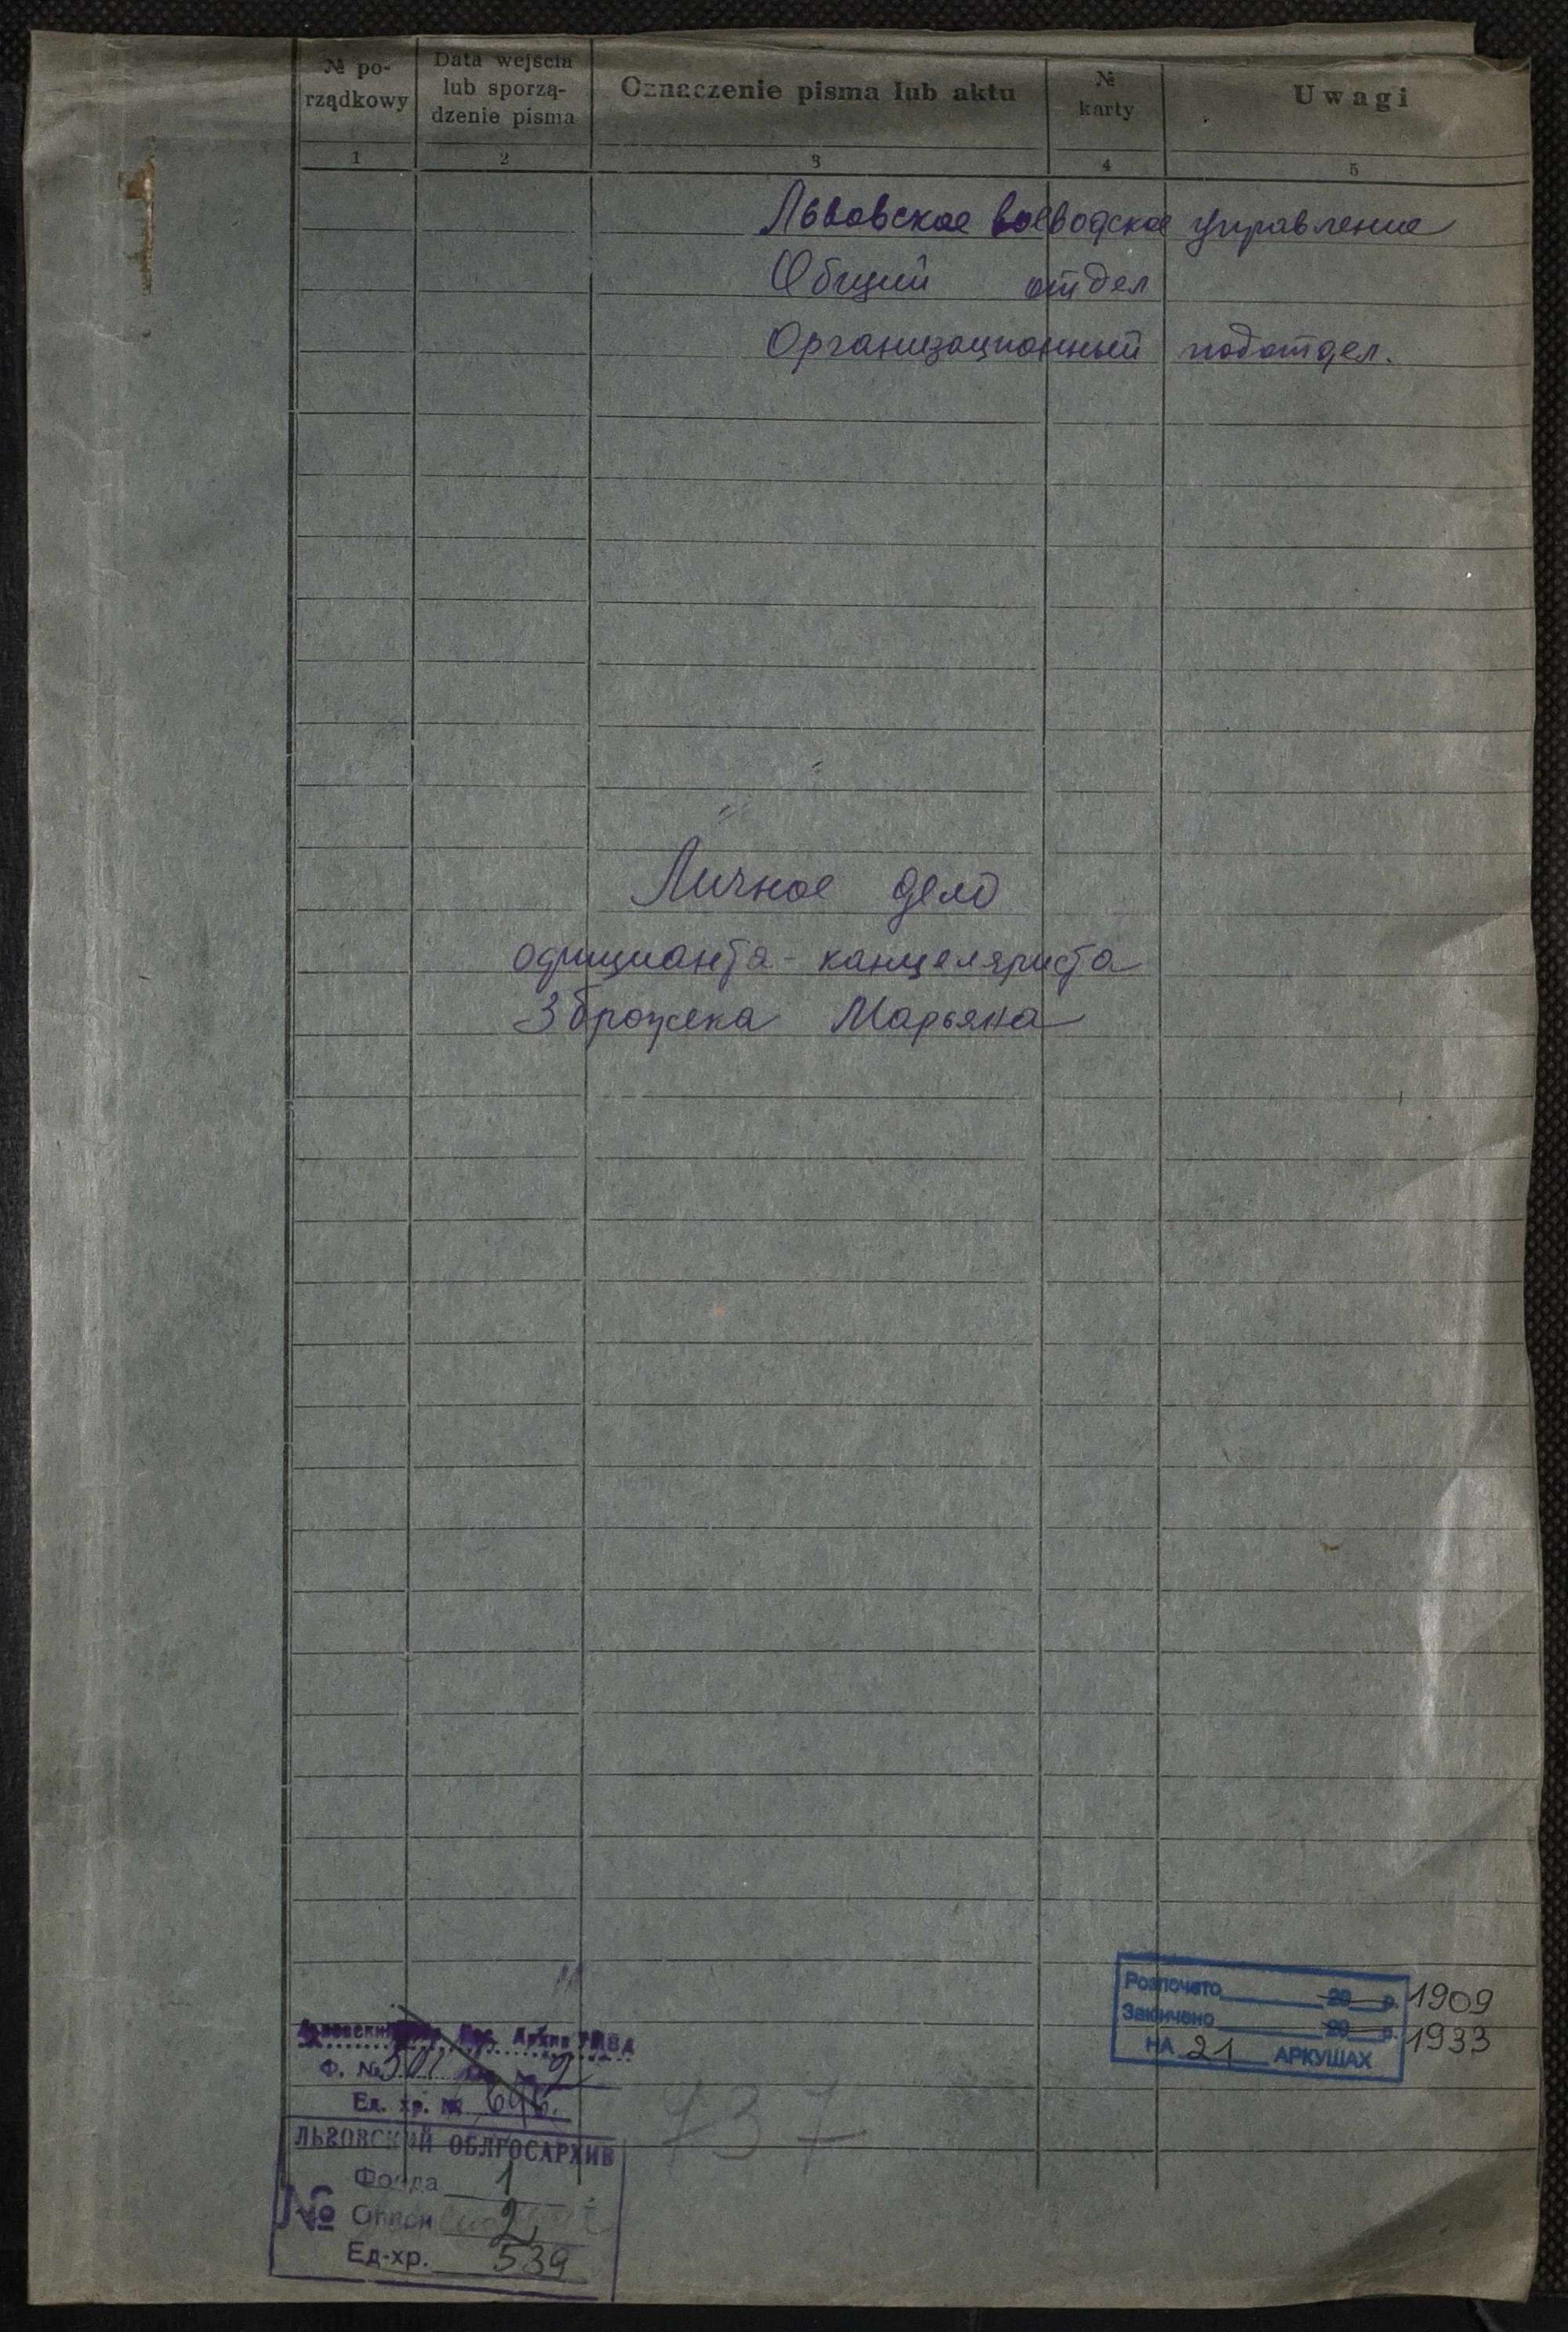 № po-
rządkowy
Data wejścia
lub sporzą-
dzenie pisma
Oznaczenie pisma lub aktu
№
karty
Uwagi
1 2 3 4 5
Львовское воеводское управление
Общий отдел
Организационный подотдел.
Личное дело
официанта-канцеляриста
Зброжека Марьяна
Розпочато 20 р. 1909
Закінчено 20 р. 1933
НА 21 АРКУШАХ
Ф. №
Ед. хр. №
737
ЛЬВОВСКИЙ ОБЛГОСАРХИВ
Фонда 1
№ Описи 2
Ед-хр. 539